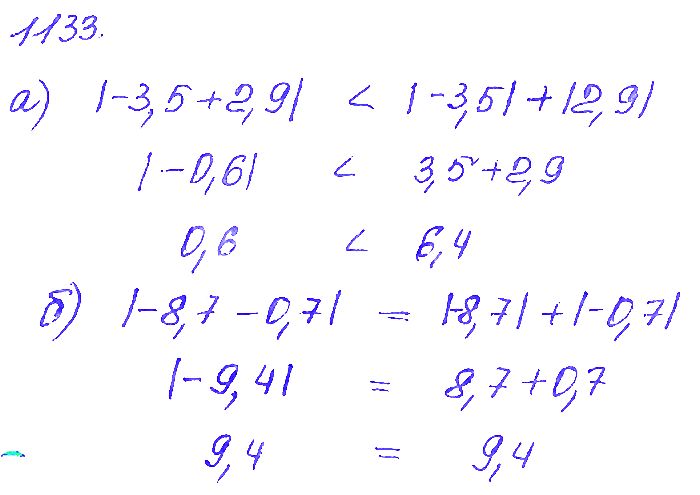 1133.
а) |-3,5+2,9| < |-3,5|+|2,9|
|-0,6| < 3,5+2,9
0,6 < 6,4
б) |-8,7-0,7| = |-8,7|+|-0,7|
|-9,4| = 8,7+0,7
9,4 = 9,4